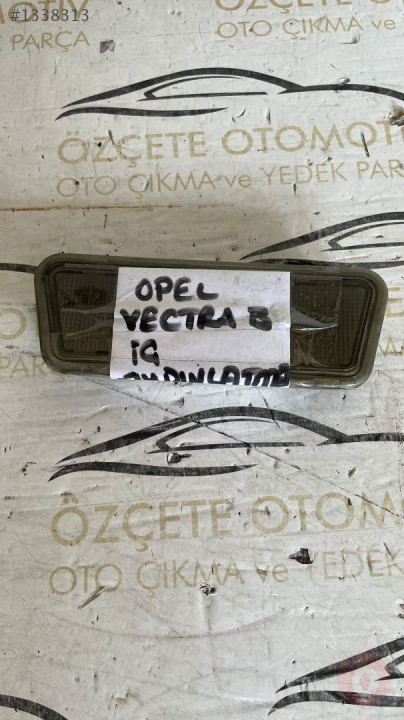 #1338313
OTOMOTİV
OTO ÇIKMA ve
PARÇA
OTO ÇIKMA ve
ÖZÇETE OTOMOTİ
OTO ÇIKMA ve YEDEK PAR
OPEL
VECTRA B
İÇ
AYDINLATMA
ÖZÇETE OTOMO
OTO ÇIKMA ve YEDEK